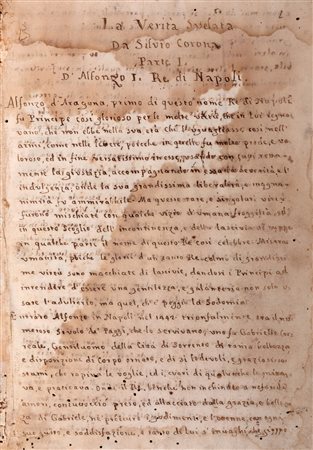 La Verità Svelata
Da Silvio Corona
Parte I.
D'Alfonzo I. Re di Napoli.
Alfonzo d'Aragona, primo di questo nome Rè di Napoli
fu Principe così glorioso per le molte virtù, che in lui regna
vano, che non ebbe nella sua età chi l'uguagliasse così nell'
armi, come nelle lettere, poiche in quelle fu molto prode, e va
loroso, ed in
la giustizia, accompagnando in essa la severità, e l'
indulgenza, onde la sua grandissima liberalità, e magna
nimità fu ammirabile. Ma queste rare, e singolari virtù
furono mischiate con qualche vizio d'umana fragilità,
in questo scoglio dell'incontinenza, e della lascivia
in qualche parte il nome di questo Rè così celebre. Misera
umanità, poiche le glorie d'un tanto Rè colmo di grandissi
me virtù sono macchiate di lascivie, dandosi i Principi ad
intendere d'essere una gentilezza, e galanteria non solo u
sare l'adulterio, ma quel, che è peggio la Sodomia.
Entrato Alfonzo in Napoli nel 1442 trionfalmente era il nu
meroso stuolo de' Paggi, che lo servivano, uno fu Gabriele Cor
reale, Gentiluomo della Città di Sorrento di tanta bellezza
e disposizione di corpo ornato, e di sì lodevoli, e graziosi co
stumi, che rapiva le voglie, ed i cuori di qualunche lo mira
va, e praticava, onde il Rè, benche non inchinato a nefondi
amori, cominciò presso, ed allacciato dalla grazia, e bellez
za di Gabriele, nè i godimenti, e l'ottenne, con ogni
suo gusto, e soddisfazione, e tanto de lui s'invaghì che